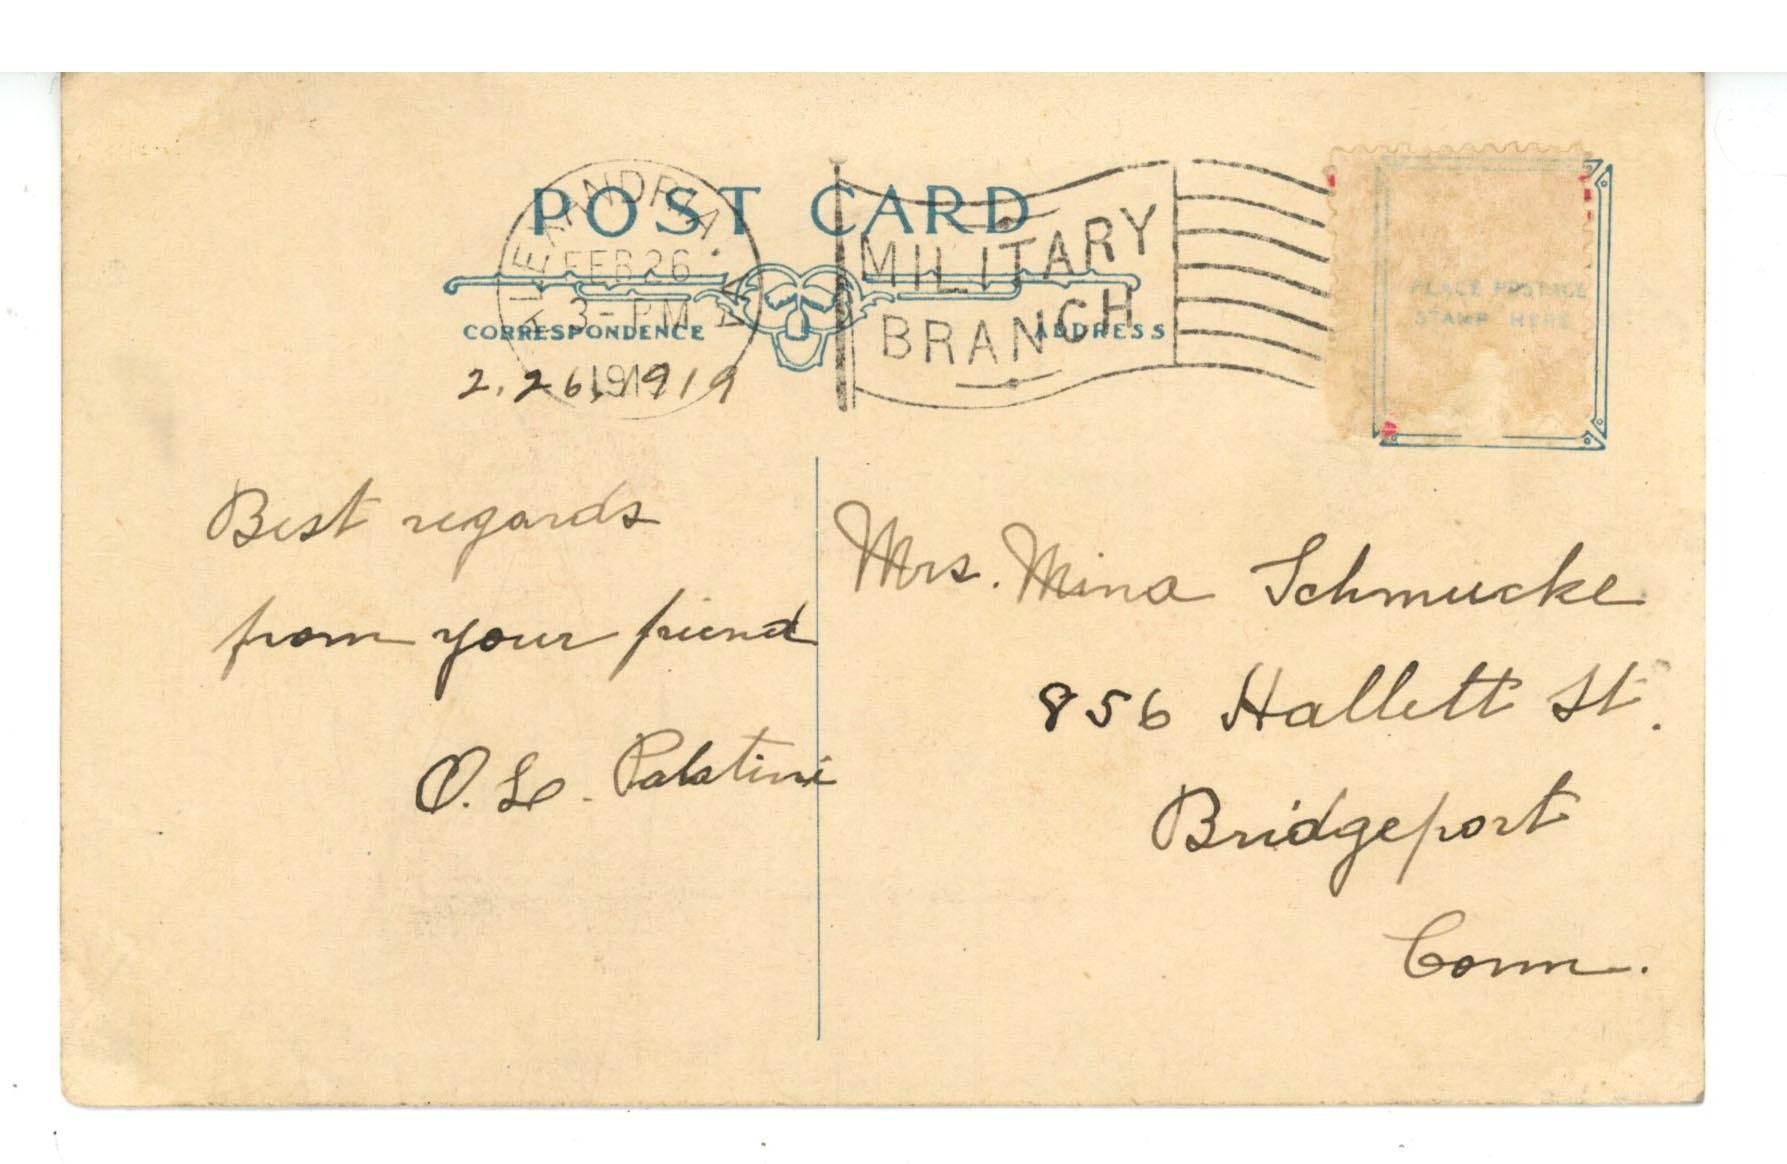 POST CARD
ALEXANDRIA. LA.
FEB 26
3-PM
MILITARY
BRANCH
PLACE POSTAGE
STAMP HERE
CORRESPONDENCE
ADDRESS
2.26.1919
Best regards
from your friend
O. L. Palatini
Mrs. Mina Schmucke
856 Hallett St.
Bridgeport
Conn.